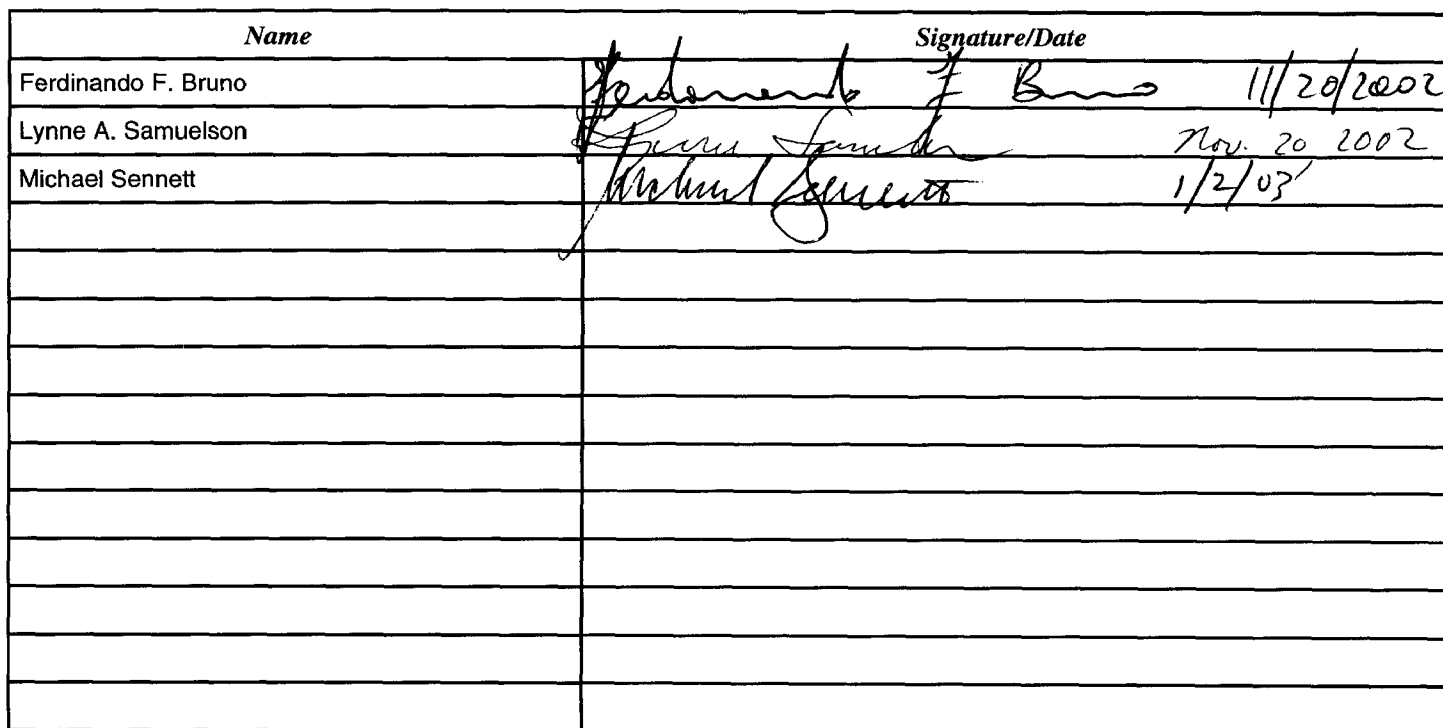 Name Signature/Date
Ferdinando F. Bruno Ferdinando F Bruno 11/20/2002
Lynne A. Samuelson Lynne Samuelson Nov. 20 2002
Michael Sennett Michael Sennett 1/2/03